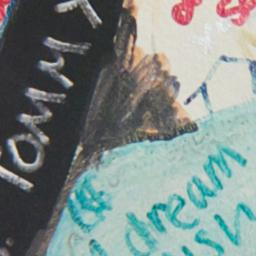 TOMMY
dream
wish